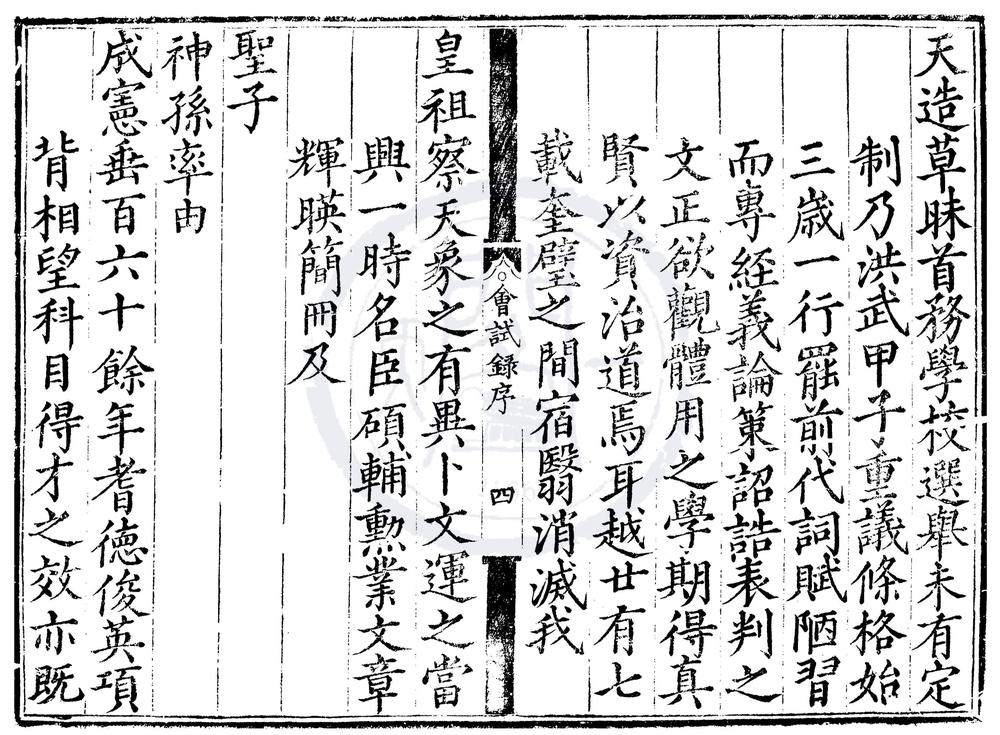 天造草昧首務學校選舉未有定
制乃洪武甲子重議條格始
三歲一行罷前代詞賦陋習
而專經義論策詔誥表判之
文正欲觀體用之學期得真
賢以資治道焉耳越廿有七
載奎璧之間宿翳消滅我
會試錄序
四
皇祖察天象之有異卜文運之當
興一時名臣碩輔勳業文章
輝暎簡冊及
聖子
神孫率由
成憲垂百六十餘年耆德俊英項
背相望科目得才之效亦既